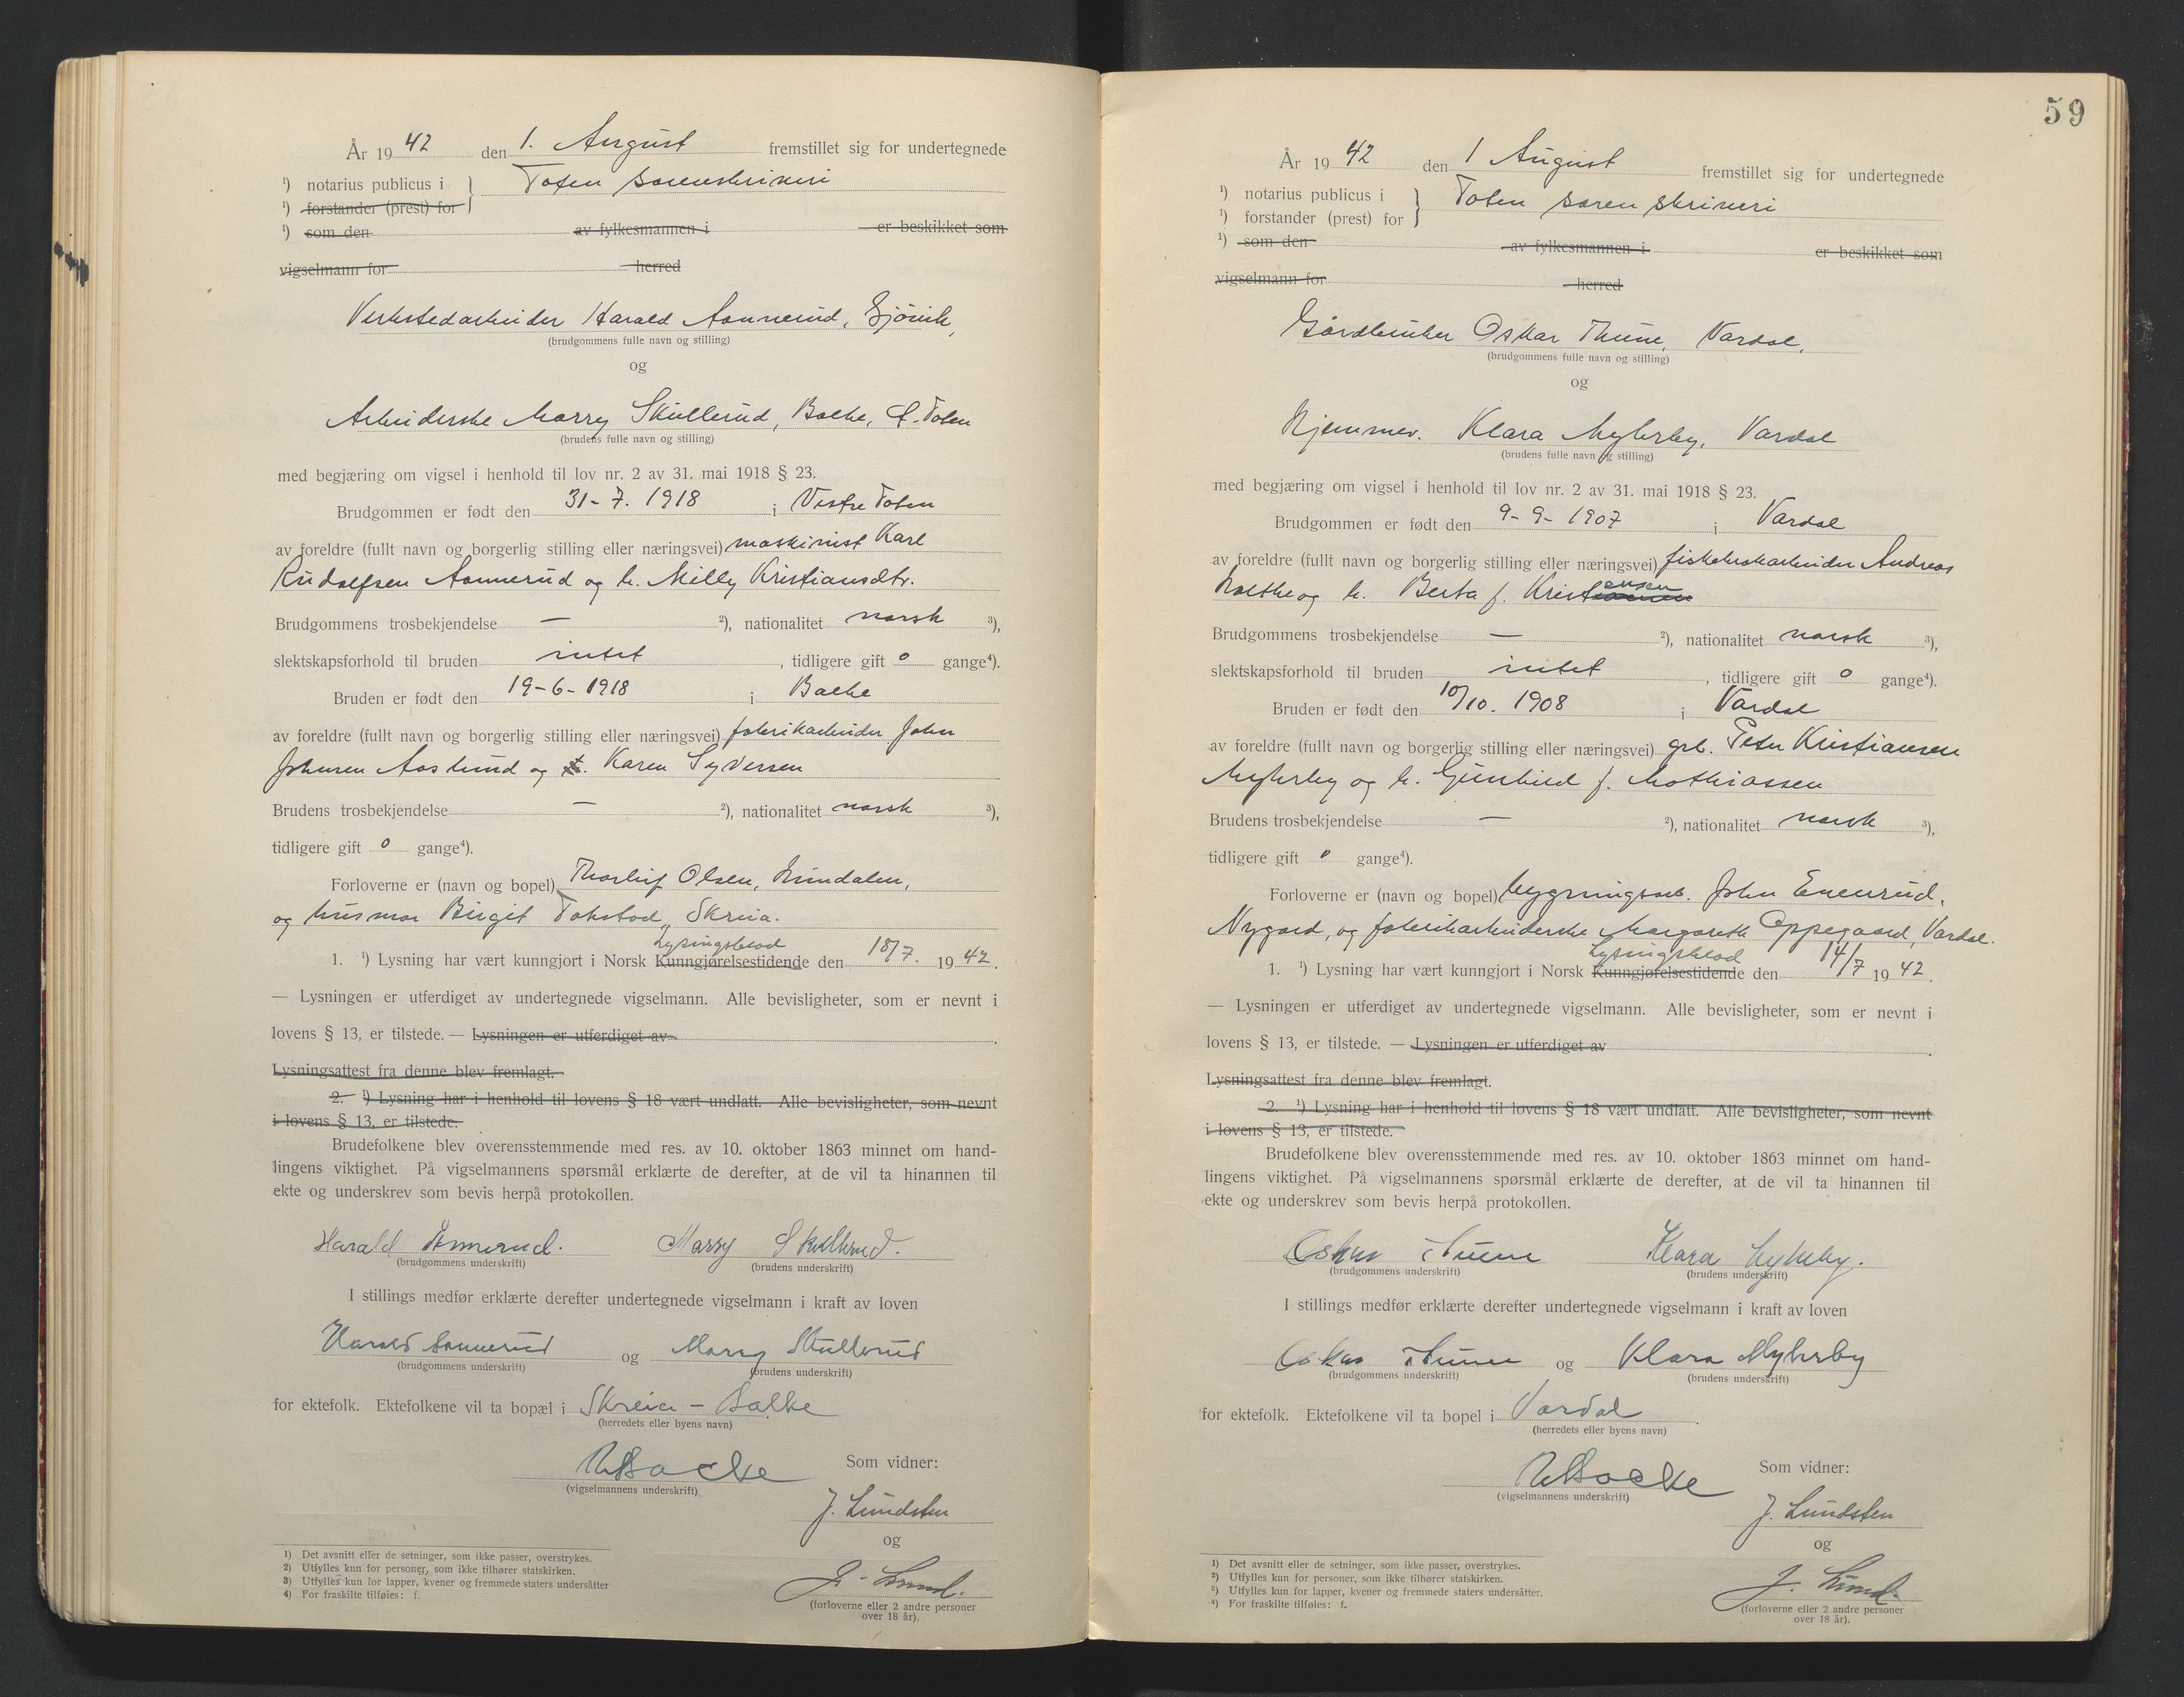 År 1942 den 1. August fremstillet sig for undertegnede
¹) notarius publicus i } Toten sorenskriveri
¹) forstander (prest) for
¹) som den av fylkesmannen i er beskikket som
vigselmann for herred
Verkstedarbeider Harald Aannerud, Gjövik,
(brudgommens fulle navn og stilling)
og
Arbeiderske Marry Skullerud, Balke, Ø. Toten
(brudens fulle navn og stilling)
med begjæring om vigsel i henhold til lov nr. 2 av 31. mai 1918 § 23.
Brudgommen er født den 31-7. 1918 i Vestre Toten
av foreldre (fullt navn og borgerlig stilling eller næringsvei) maskinist Karl
Rudolfsen Aannerud og h. Milly Kristiansdtr.
Brudgommens trosbekjendelse — ²), nationalitet norsk ³),
slektskapsforhold til bruden intet, tidligere gift 0 gange⁴).
Bruden er født den 19-6-1918 i Balke
av foreldre (fullt navn og borgerlig stilling eller næringsvei) fabrikarbeider John
Johnsen Aaslund og Karen Syversen
Brudens trosbekjendelse — ²), nationalitet norsk ³),
tidligere gift 0 gange⁴).
Forloverne er (navn og bopel) Thorleif Olsen,
og husmor Birgit Tokstad, Skreia.
Lysingsblad
1. ¹) Lysning har vært kunngjort i Norsk Kunngjørelsestidende den 18/7. 1942.
— Lysningen er utferdiget av undertegnede vigselmann. Alle bevisligheter, som er nevnt i
lovens § 13, er tilstede. — Lysningen er utferdiget av
Lysningsattest fra denne blev fremlagt.
2. ¹) Lysning har i henhold til lovens § 18 vært undlatt. Alle bevisligheter, som nevnt
i lovens § 13, er tilstede.
Brudefolkene blev overensstemmende med res. av 10. oktober 1863 minnet om hand-
lingens viktighet. På vigselmannens spørsmål erklærte de derefter, at de vil ta hinannen til
ekte og underskrev som bevis herpå protokollen.
Harald Annerud. Marry Skullerud.
(brudgommens underskrift) (brudens underskrift)
I stillings medfør erklærte derefter undertegnede vigselmann i kraft av loven
Harald Aannerud og Marry Skullerud
(brudgommens underskrift) (brudens underskrift)
for ektefolk. Ektefolkene vil ta bopæl i Skreia - Balke
(herredets eller byens navn)
Som vidner:
(vigselmannens underskrift)
J. Lundsten
og
J. Lund.
(forloverne eller 2 andre personer
over 18 år).
1) Det avsnitt eller de setninger, som ikke passer, overstrykes.
2) Utfylles kun for personer, som ikke tilhører statskirken.
3) Utfylles kun for lapper, kvener og fremmede staters undersåtter
4) For fraskilte tilføies: f.
59
År 1942 den 1 August fremstillet sig for undertegnede
¹) notarius publicus i } Toten sorenskriveri
¹) forstander (prest) for
¹) som den av fylkesmannen i er beskikket som
vigselmann for herred
Gårdbruker Oskar Thune, Vardal.
(brudgommens fulle navn og stilling)
og
Hjemmev. Klara Myhrby, Vardal
(brudens fulle navn og stilling)
med begjæring om vigsel i henhold til lov nr. 2 av 31. mai 1918 § 23.
Brudgommen er født den 9-9-1907 i Vardal
av foreldre (fullt navn og borgerlig stilling eller næringsvei) Andreas
og h. Berta f. Kristiansen
Brudgommens trosbekjendelse — ²), nationalitet norsk ³),
slektskapsforhold til bruden intet, tidligere gift 0 gange⁴).
Bruden er født den 10/10. 1908 i Vardal
av foreldre (fullt navn og borgerlig stilling eller næringsvei) grb. Peter Kristiansen
Myhrby og h. Gunhild f. Mathiassen
Brudens trosbekjendelse — ²), nationalitet norsk ³),
tidligere gift 0 gange⁴).
Forloverne er (navn og bopel) bygningsarb. John Enerud,
Nygard, og fabrikarbeiderske Margareth Oppegaard, Vardal.
Lysingsblad
1. ¹) Lysning har vært kunngjort i Norsk Kunngjørelsestidende den 14/7 1942.
— Lysningen er utferdiget av undertegnede vigselmann. Alle bevisligheter, som er nevnt i
lovens § 13, er tilstede. — Lysningen er utferdiget av
Lysningsattest fra denne blev fremlagt.
2. ¹) Lysning har i henhold til lovens § 18 vært undlatt. Alle bevisligheter, som nevnt
i lovens § 13, er tilstede.
Brudefolkene blev overensstemmende med res. av 10. oktober 1863 minnet om hand-
lingens viktighet. På vigselmannens spørsmål erklærte de derefter, at de vil ta hinannen til
ekte og underskrev som bevis herpå protokollen.
Oskar Thune Klara Myhrby.
(brudgommens underskrift) (brudens underskrift)
I stillings medfør erklærte derefter undertegnede vigselmann i kraft av loven
Oskar Thune og Klara Myhrby
(brudgommens underskrift) (brudens underskrift)
for ektefolk. Ektefolkene vil ta bopel i Vardal.
(herredets eller byens navn)
Som vidner:
(vigselmannens underskrift)
J. Lundsten
og
J. Lund
(forloverne eller 2 andre personer
over 18 år).
1) Det avsnitt eller de setninger, som ikke passer, overstrykes.
2) Utfylles kun for personer, som ikke tilhører statskirken.
3) Utfylles kun for lapper, kvener og fremmede staters undersåtter.
4) For fraskilte tilføies: f.